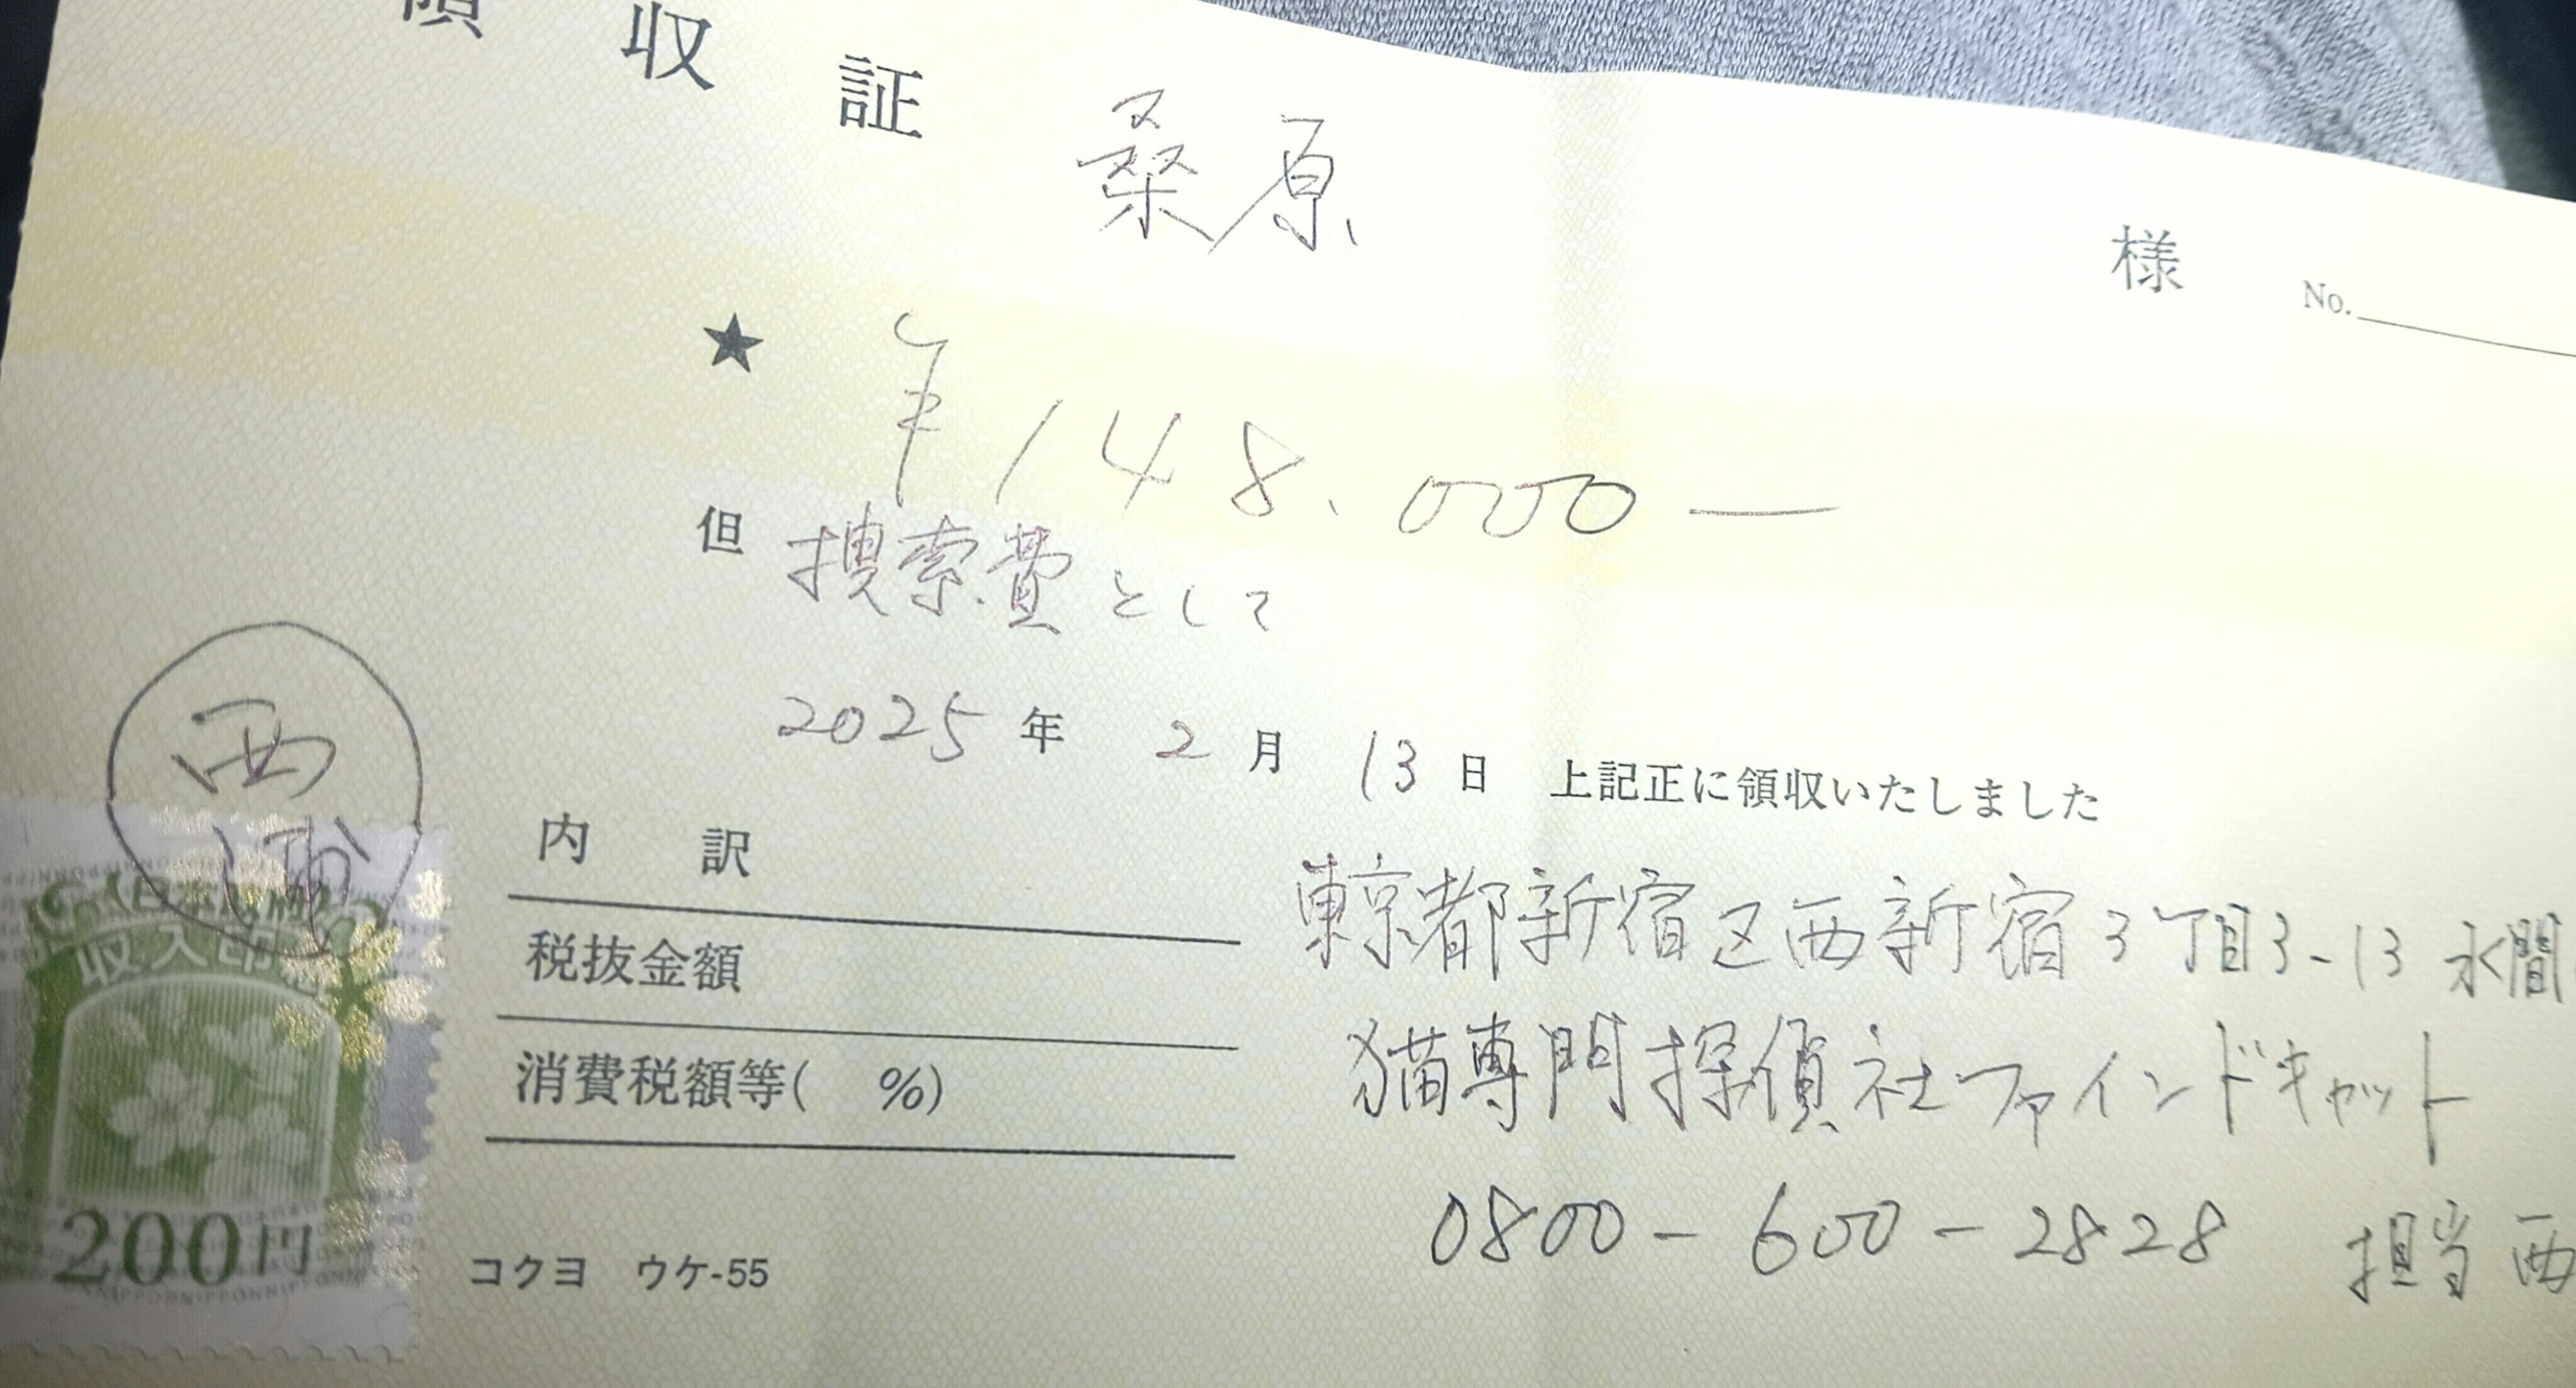 領収証
桑原 様
No.
★ ¥148.000—
但 捜索費として
2025年 2月 13日 上記正に領収いたしました
西浦
内訳
税抜金額
消費税額等( %)
東京都新宿区西新宿3丁目3-13 水間
猫専門探偵社ファインドキャット
0800-600-2828 担当 西
日本政府
収入印紙
200円
コクヨ ウケ-55